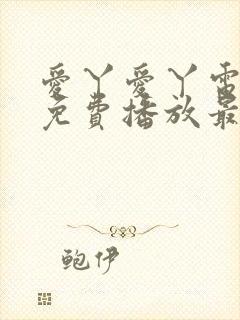 愛丫愛丫電
免費播放最
鲍伊